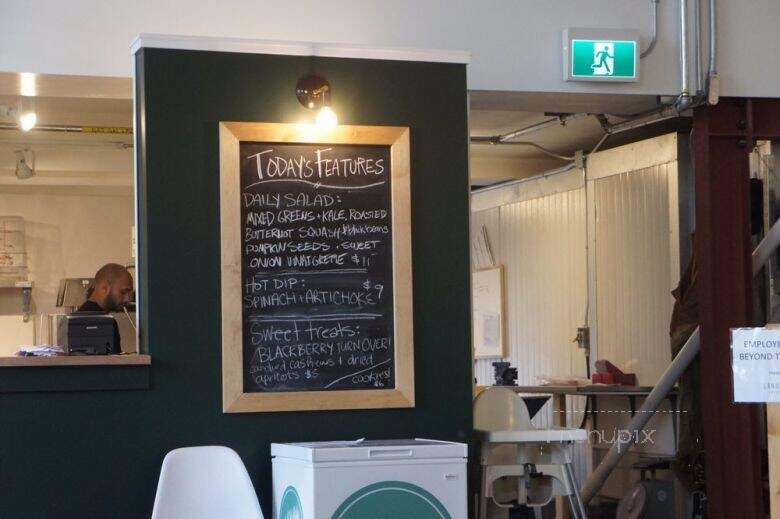 TODAY'S FEATURES
DAILY SALAD:
MIXED GREENS + KALE, ROASTED
BUTTERNUT SQUASH, black beans
PUMPKIN SEEDS + SWEET
ONION VINAIGRETTE $11
HOT DIP: $9
SPINACH + ARTICHOKE
Sweet treats:
BLACKBERRY TURNOVER!
candied cashews + dried
apricots $5 cookies! $6
EMPLOY
BEYOND T
menupix